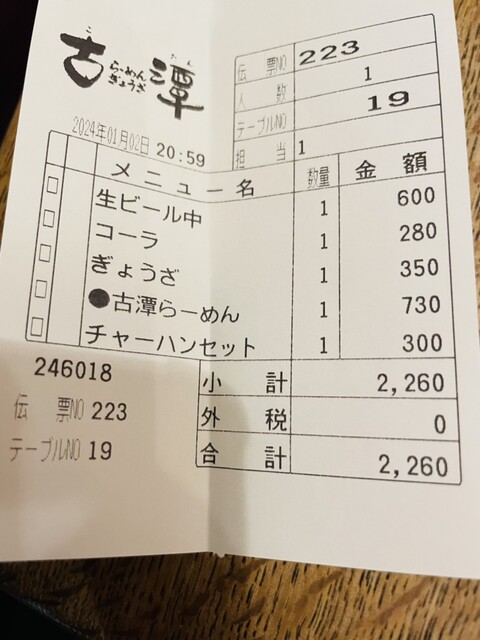 こ たん
古潭
らーめん
ぎょうざ
伝票NO 223
人数 1
テーブルNO 19
担当 1
2024年01月02日 20:59
メニュー名 数量 金額
生ビール中 1 600
コーラ 1 280
ぎょうざ 1 350
●古潭らーめん 1 730
チャーハンセット 1 300
小計 2,260
外税 0
合計 2,260
246018
伝票NO 223
テーブルNO 19